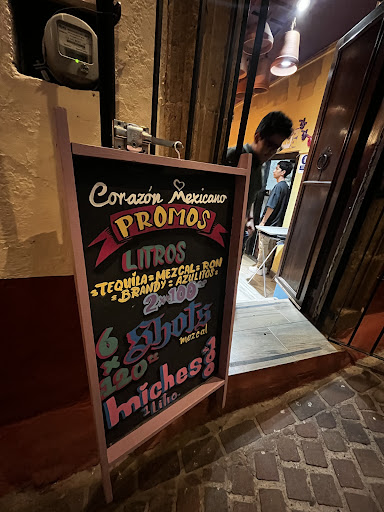 Corazón Mexicano
PROMOS
LITROS
=TEQUILA=MEZCAL=RON
=BRANDY=AZULITOS=
2x100
6x Shots
120 mezcal
miches
1 Litro.